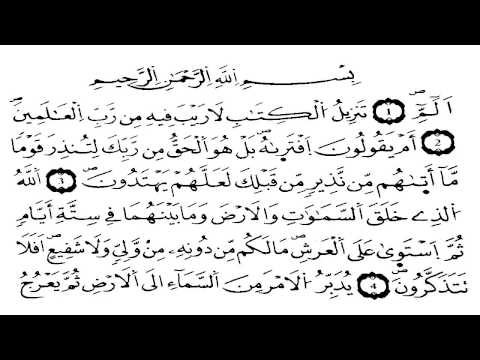 بِسْمِ اللَّهِ الرَّحْمَٰنِ الرَّحِيمِ
أَلَٓمِّٓۖ 1 تَنزِيلُ الْكِتَٰبِ لَا رَيْبَ فِيهِ مِن رَّبِّ الْعَٰلَمِينَۖ
2 أَمْ يَقُولُونَ اَفْتَر۪ىٰهُۖ بَلْ هُوَ الْحَقُّ مِن رَّبِّكَ لِتُنذِرَ قَوْماً
مَّآ أَت۪ىٰهُم مِّن نَّذِيرٍ مِّن قَبْلِكَ لَعَلَّهُمْ يَهْتَدُونَۖ 3 اَللَّهُ
الذِے خَلَقَ السَّمَٰوَٰتِ وَالَارْضَ وَمَا بَيْنَهُمَا فِے سِتَّةِ أَيَّامٍ
ثُمَّ اَسْتَوَىٰ عَلَى الْعَرْشِۖ مَا لَكُم مِّن دُونِهِۦ مِنْ وَّلِيٍّ وَلَا شَفِيعٍۖ اَفَلَا
تَتَذَكَّرُونَۖ 4 يُدَبِّرُ الَامْرَ مِنَ السَّمَآءِ اِلَى الَارْضِ ثُمَّ يَعْرُجُ